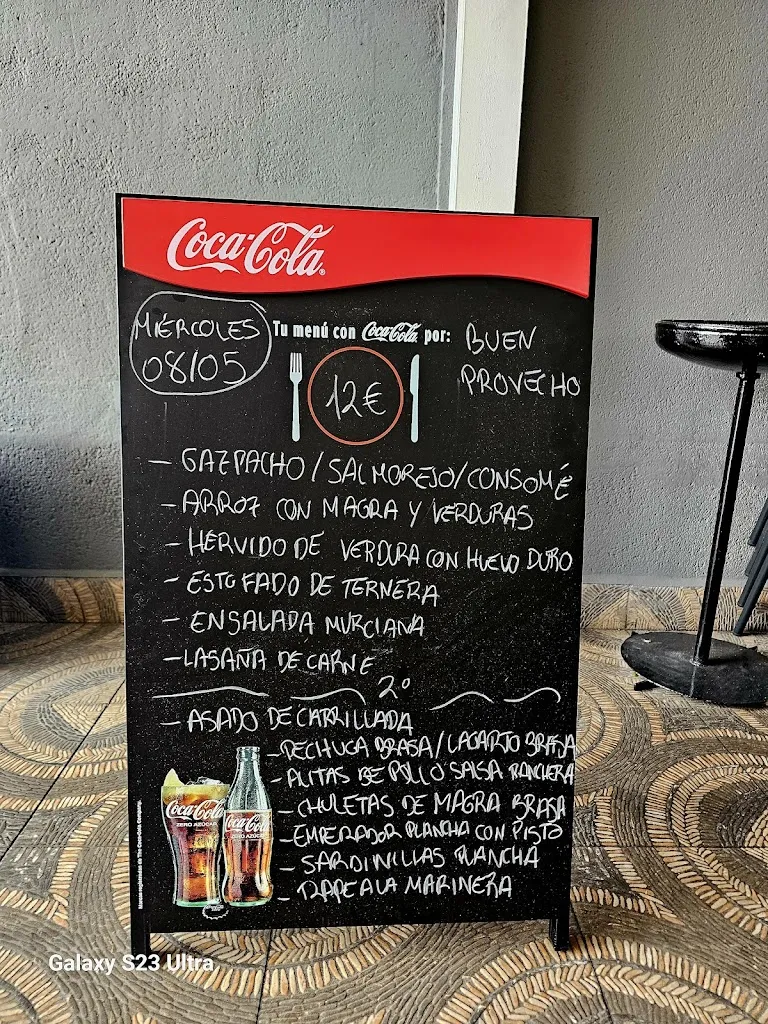 Coca-Cola®
MIÉRCOLES
08/05
Tu menú con Coca-Cola por:
BUEN
PROVECHO
12€
- GAZPACHO/SALMOREJO/CONSOMÉ
- ARROZ CON MAGRA Y VERDURAS
- HERVIDO DE VERDURA CON HUEVO DURO
- ESTOFADO DE TERNERA
- ENSALADA MURCIANA
- LASAÑA DE CARNE
2º
- ASADO DE CARRILLADA
- PECHUGA BRASA/LAGARTO BRASA
- ALITAS DE POLLO SALSA RANCHERA
- CHULETAS DE MAGRA BRASA
- EMPERADOR PLANCHA CON PISTO
- SARDINILLAS PLANCHA
- RAPE A LA MARINERA
Coca-Cola
ZERO AZÚCAR
Coca-Cola
ZERO AZÚCAR
Galaxy S23 Ultra